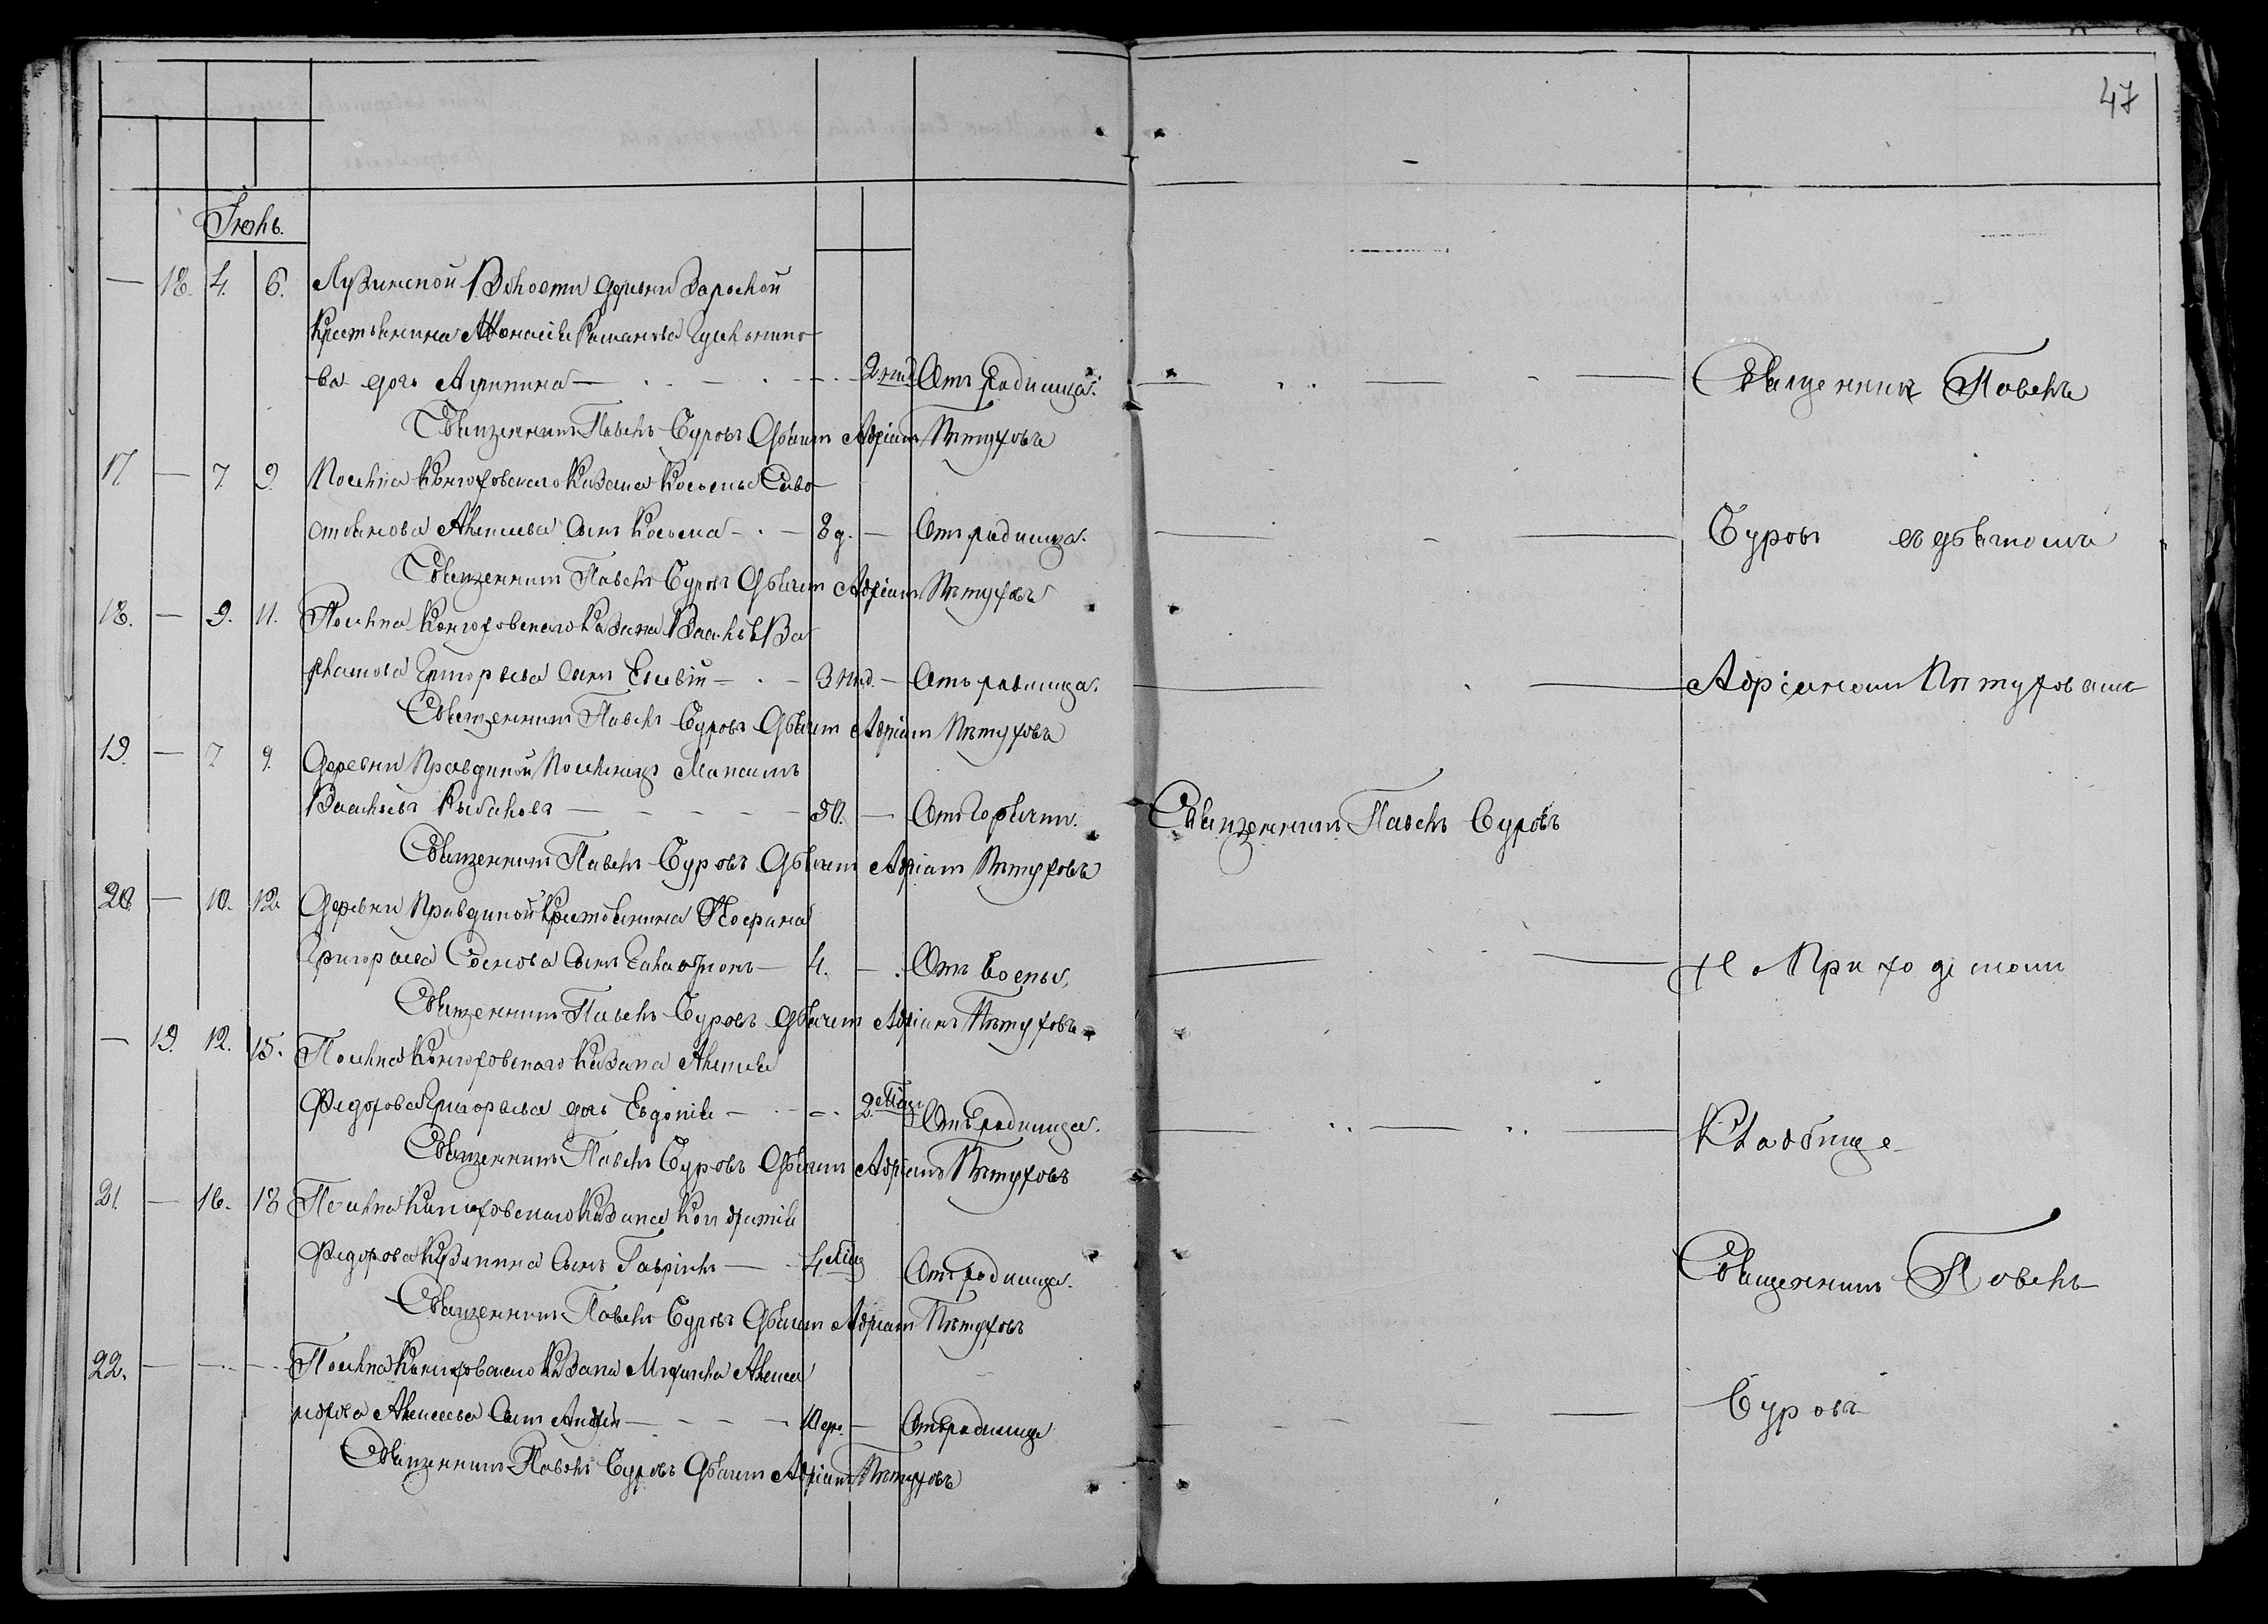 47
Июнь.
— 18. 4. 6. Лузинской Волости деревни Зарослой
Крестьянина Афонасія Романова
ва дочь Агрипина — 2 нед Отъ родимца.
Священникъ Павелъ Суровъ Дьячекъ Адріанъ Пѣтуховъ
17 — 7. 9. Поселка Конюховскаго Казака Косьмы Саво
стьянова Алексѣева сынъ Косьма — 8 д. — Отъ родимца.
Священникъ Павелъ Суровъ Дьячекъ Адріанъ Пѣтуховъ
18. — 9. 11. Поселка Конюховскаго Казака Василья Ва
Григорьева сынъ Елисѣй — 3 нед. — Отъ родимца.
Священникъ Павелъ Суровъ Дьячекъ Адріанъ Пѣтуховъ
19. — 7 9. Деревни Правдиной Поселенецъ Максимъ
Васильевъ Рыбаковъ — 50. — Отъ Горячки.
Священникъ Павелъ Суровъ Дьячекъ Адріанъ Пѣтуховъ
20. — 10. 12. Деревни Правдиной Крестьянина
Григорьева сынъ Галактіонъ — 4. — Отъ Воспы.
Священникъ Павелъ Суровъ Дьячекъ Адріанъ Пѣтуховъ
— 19. 12. 15. Поселка Конюховскаго Казака Алексѣя
Федорова Григорьева дочь Евдокія — 2. мѣсяц Отъ родимца.
Священникъ Павелъ Суровъ Дьячекъ Адріанъ Пѣтуховъ
21. — 16. 18 Поселка Конюховскаго Казака Кондратія
Федорова Кузькина сынъ Гавріилъ — 4 мѣсяц Отъ родимца.
Священникъ Павелъ Суровъ Дьячекъ Адріанъ Пѣтуховъ
22. — — — Поселка Конюховскаго Казака Михаила Алекса
ндрова Алексѣева сынъ Андрей — 10 дне. — Отъ родимца
Священникъ Павелъ Суровъ Дьячекъ Адріанъ Пѣтуховъ
Священникъ Павелъ Суровъ
Священник Павелъ
Суровъ съ дьячкомъ
Адріаномъ Пѣтуховымъ
На Приходскомъ
Кладбище
Священникъ Павелъ
Суровъ